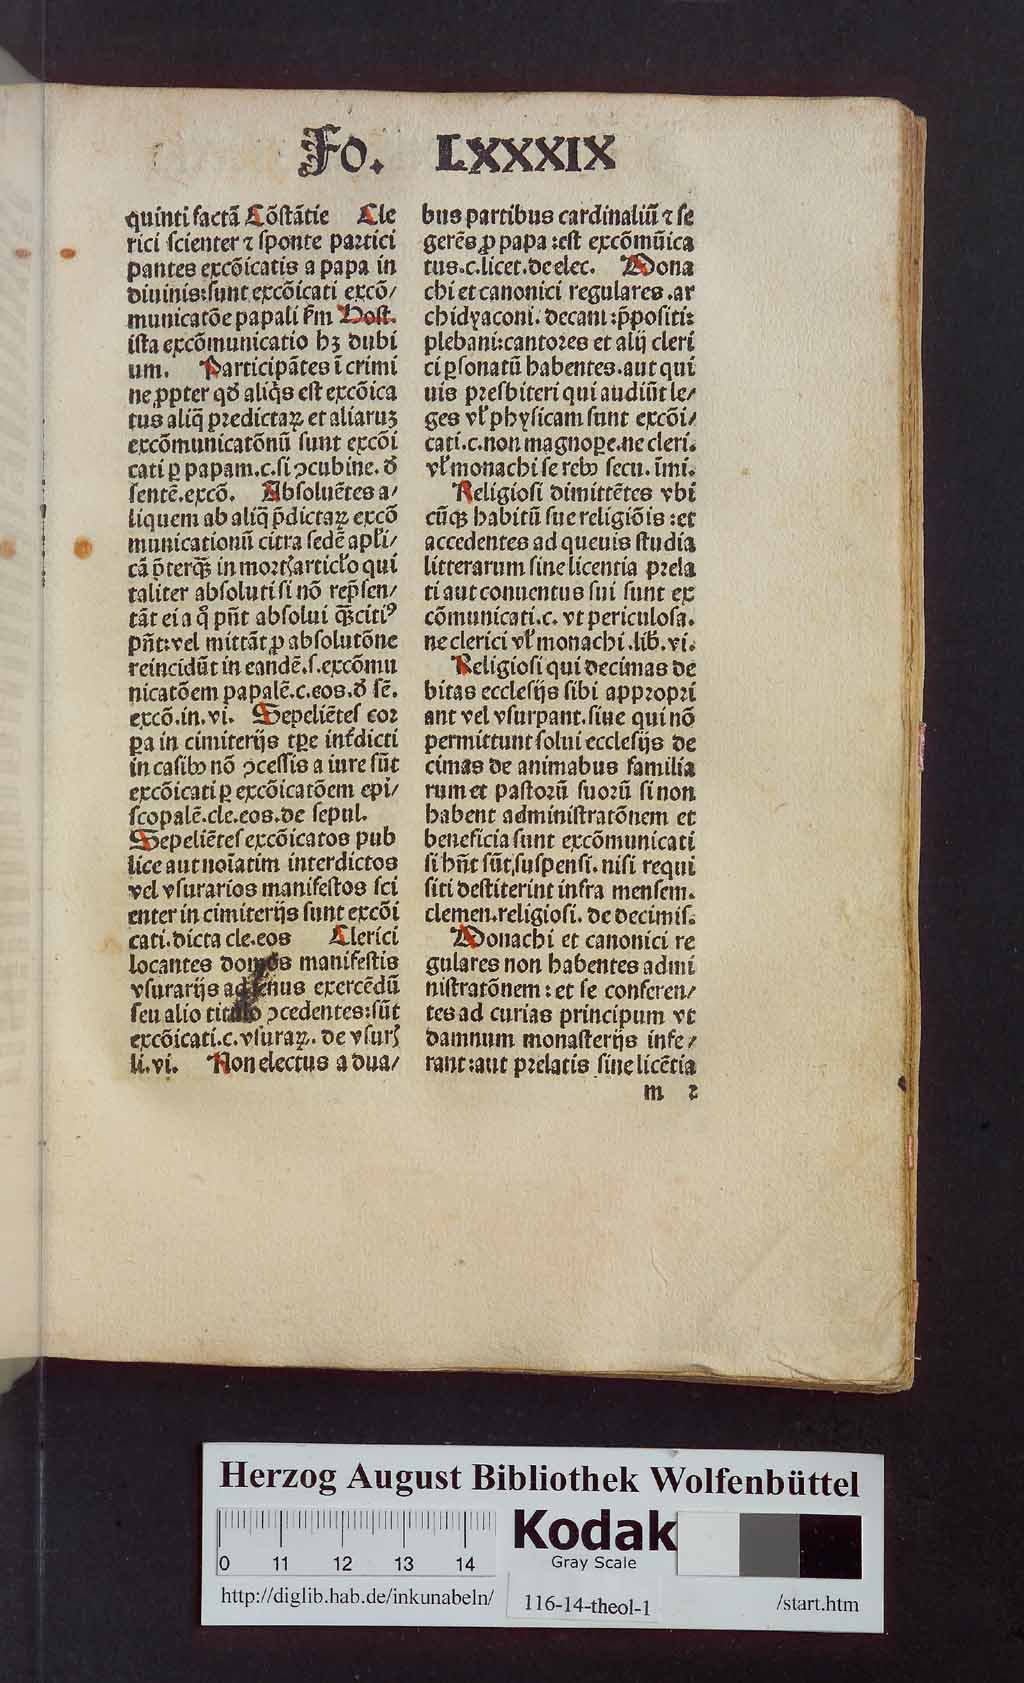 Fo. LXXXIX
quinti factã Cõstãtie Cle
rici scienter ⁊ sponte partici
pantes excõicatis a papa in
diuinis:sunt excõicati excõ/
municatõe papali fm Host.
ista excõmunicatio hꝫ dubi
um. Participãtes ĩ crimi
ne ꝓpter qđ aliq̃s est excõica
tus aliq̃ predictaꝝ et aliaruꝫ
excõmunicatõnũ sunt excõi
cati ꝑ papam.c.si ↄcubine. đ
sentẽ.excõ. Absoluẽtes a/
liquem ab aliq̃ p̃dictaꝝ excõ
municationũ citra sedẽ apłi/
cã p̃terq̃ꝫ in mort articło qui
taliter absoluti si nõ rep̃sen/
tãt ei a q̊ pñt absolui q̃ꝫcitiꝰ
pñt:vel mittãt ꝓ absolutõne
reincidũt in eandẽ.s.excõmu
nicatõem papalẽ.c.eos.đ sẽ.
excõ.in.vi. Sepeliẽtes cor
ꝑa in cimiterijs tꝑe inťdicti
in casibꝰ nõ ↄcessis a iure sũt
excõicati ꝑ excõicatõem epi/
scopalẽ.cle.eos.de sepul.
Sepeliẽtes excõicatos pub
lice aut noĩatim interdictos
vel vsurarios manifestos sci
enter in cimiterijs sunt excõi
cati.dicta cle.eos Clerici
locantes domos manifestis
vsurarijs ad fenus exercẽdũ
seu alio titulo ↄcedentes:sũt
excõicati.c.vsuraꝝ. de vsur
li.vi. Non electus a dua/
bus partibus cardinaliũ ⁊ se
gerẽs ꝓ papa :est excõmũica
tus.c.licet.de elec. Mona
chi et canonici regulares .ar
chidyaconi. decani :p̃positi:
plebani:cantores et alij cleri
ci ꝑsonatũ habentes.aut qui
uis presbiteri qui audiũt le/
ges vł physicam sunt excõi/
cati.c.non magnoꝑe.ne cleri.
vł monachi se rebꝰ secu. ĩmi.
Religiosi dimittẽtes vbi
cũqꝫ habitũ sue religiõis :et
accedentes ad queuis studia
litterarum sine licentia prela
ti aut conuentus sui sunt ex
cõmunicati.c. vt periculosa.
ne clerici vł monachi .lib̃.vi.
Religiosi qui decimas de
bitas ecclesijs sibi appropri
ant vel vsurpant.siue qui nõ
permittunt solui ecclesijs de
cimas de animabus familia
rum et pastorũ suorũ si non
habent administratõnem et
beneficia sunt excõmunicati
si hñt sũt suspensi. nisi requi
siti destiterint infra mensem.
clemen.religiosi. de decimis.
Monachi et canonici re
gulares non habentes admi
nistratõnem : et se conferen/
tes ad curias principum vt
damnum monasterijs infe/
rant :aut prelatis sine licẽtia
m 2
Herzog August Bibliothek Wolfenbüttel
0 11 12 13 14
Kodak
Gray Scale
http://diglib.hab.de/inkunabeln/ 116-14-theol-1 /start.htm